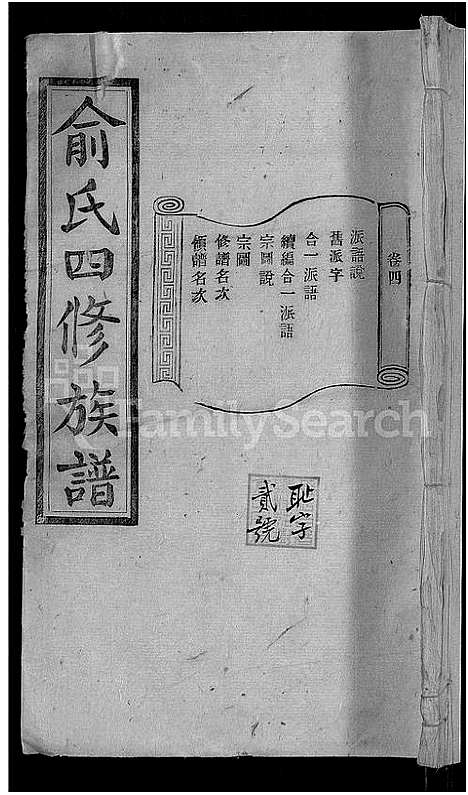 俞氏四修族譜
卷四
派語說
舊派字
合一派語
續編合一派語
宗圖說
宗圖
修譜名次
領譜名次
耻字
貳號
FamilySearch